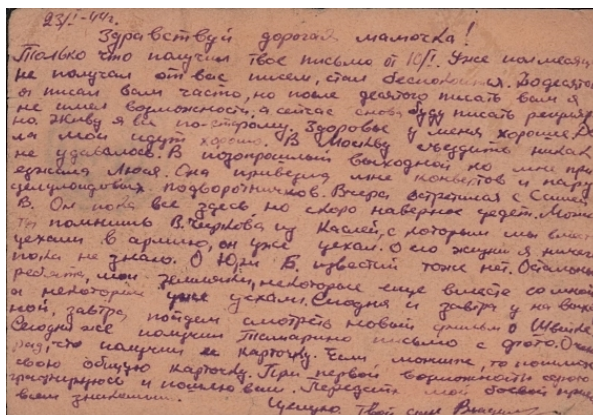 23/I-44г.
Здравствуй дорогая мамочка!
Только что получил твое письмо от 10/I. Уже полмесяца
не получал от вас писем, стал беспокоиться. До десято
го писал вам часто, но после десятого писать вам я
не имел возможности, а сейчас снова буду писать регуляр
но. Живу я все по-старому. Здоровье у меня хорошее. Де
ла мои идут хорошо. В Москву съездить никак
не удавалось. В позапрошлый выходной ко мне при
езжала Люся. Она привезла мне конвертов и пару
целулоидовых подворотничков. Вчера встретился с Сашей
В. Он пока все здесь, но скоро наверное уедет. Может
ты помнишь В. Чиркова из Каслей, с которым мы вместе
уехали в армию, он уже уехал. О его жизни я ничего
пока не знаю. О Юри Б. известий тоже нет. Остальные
ребята, мои земляки, некоторые еще вместе со мной
и некоторые уже уехали. Сегодня и завтра у на выход
ной, завтра пойдем смотреть новый фильм о Швейке.
Сегодня же получил Тамарино письмо с фото. Очень
рад, что получил ее карточку. Если можите, то пошлите
свою общую карточку. При первой возможности сфото
графируюсь и пошлю вам. Передайте мой боевой привет
всем знакомым.
Целую. Твой сын